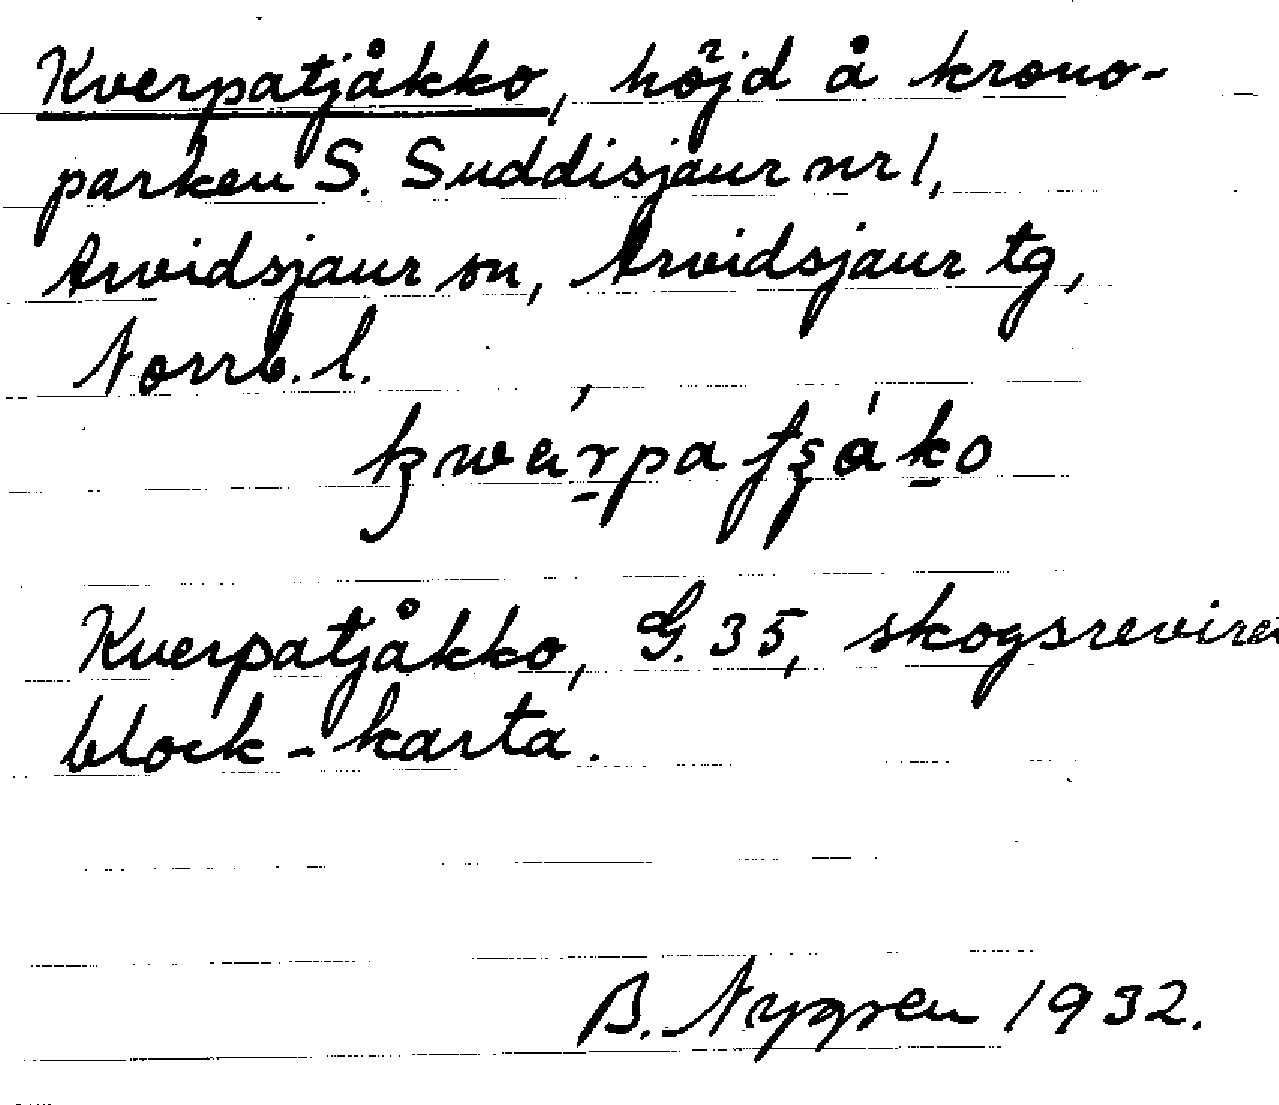 Kverpatjåkko, höjd å krono-
parken S. Suddisjaur nr 1,
Arvidsjaur sn, Arvidsjaur tg,
Norrb. l.
Kverpatjåkko, G. 35, skogsreviret
block-karta.
B. Nygren 1932.